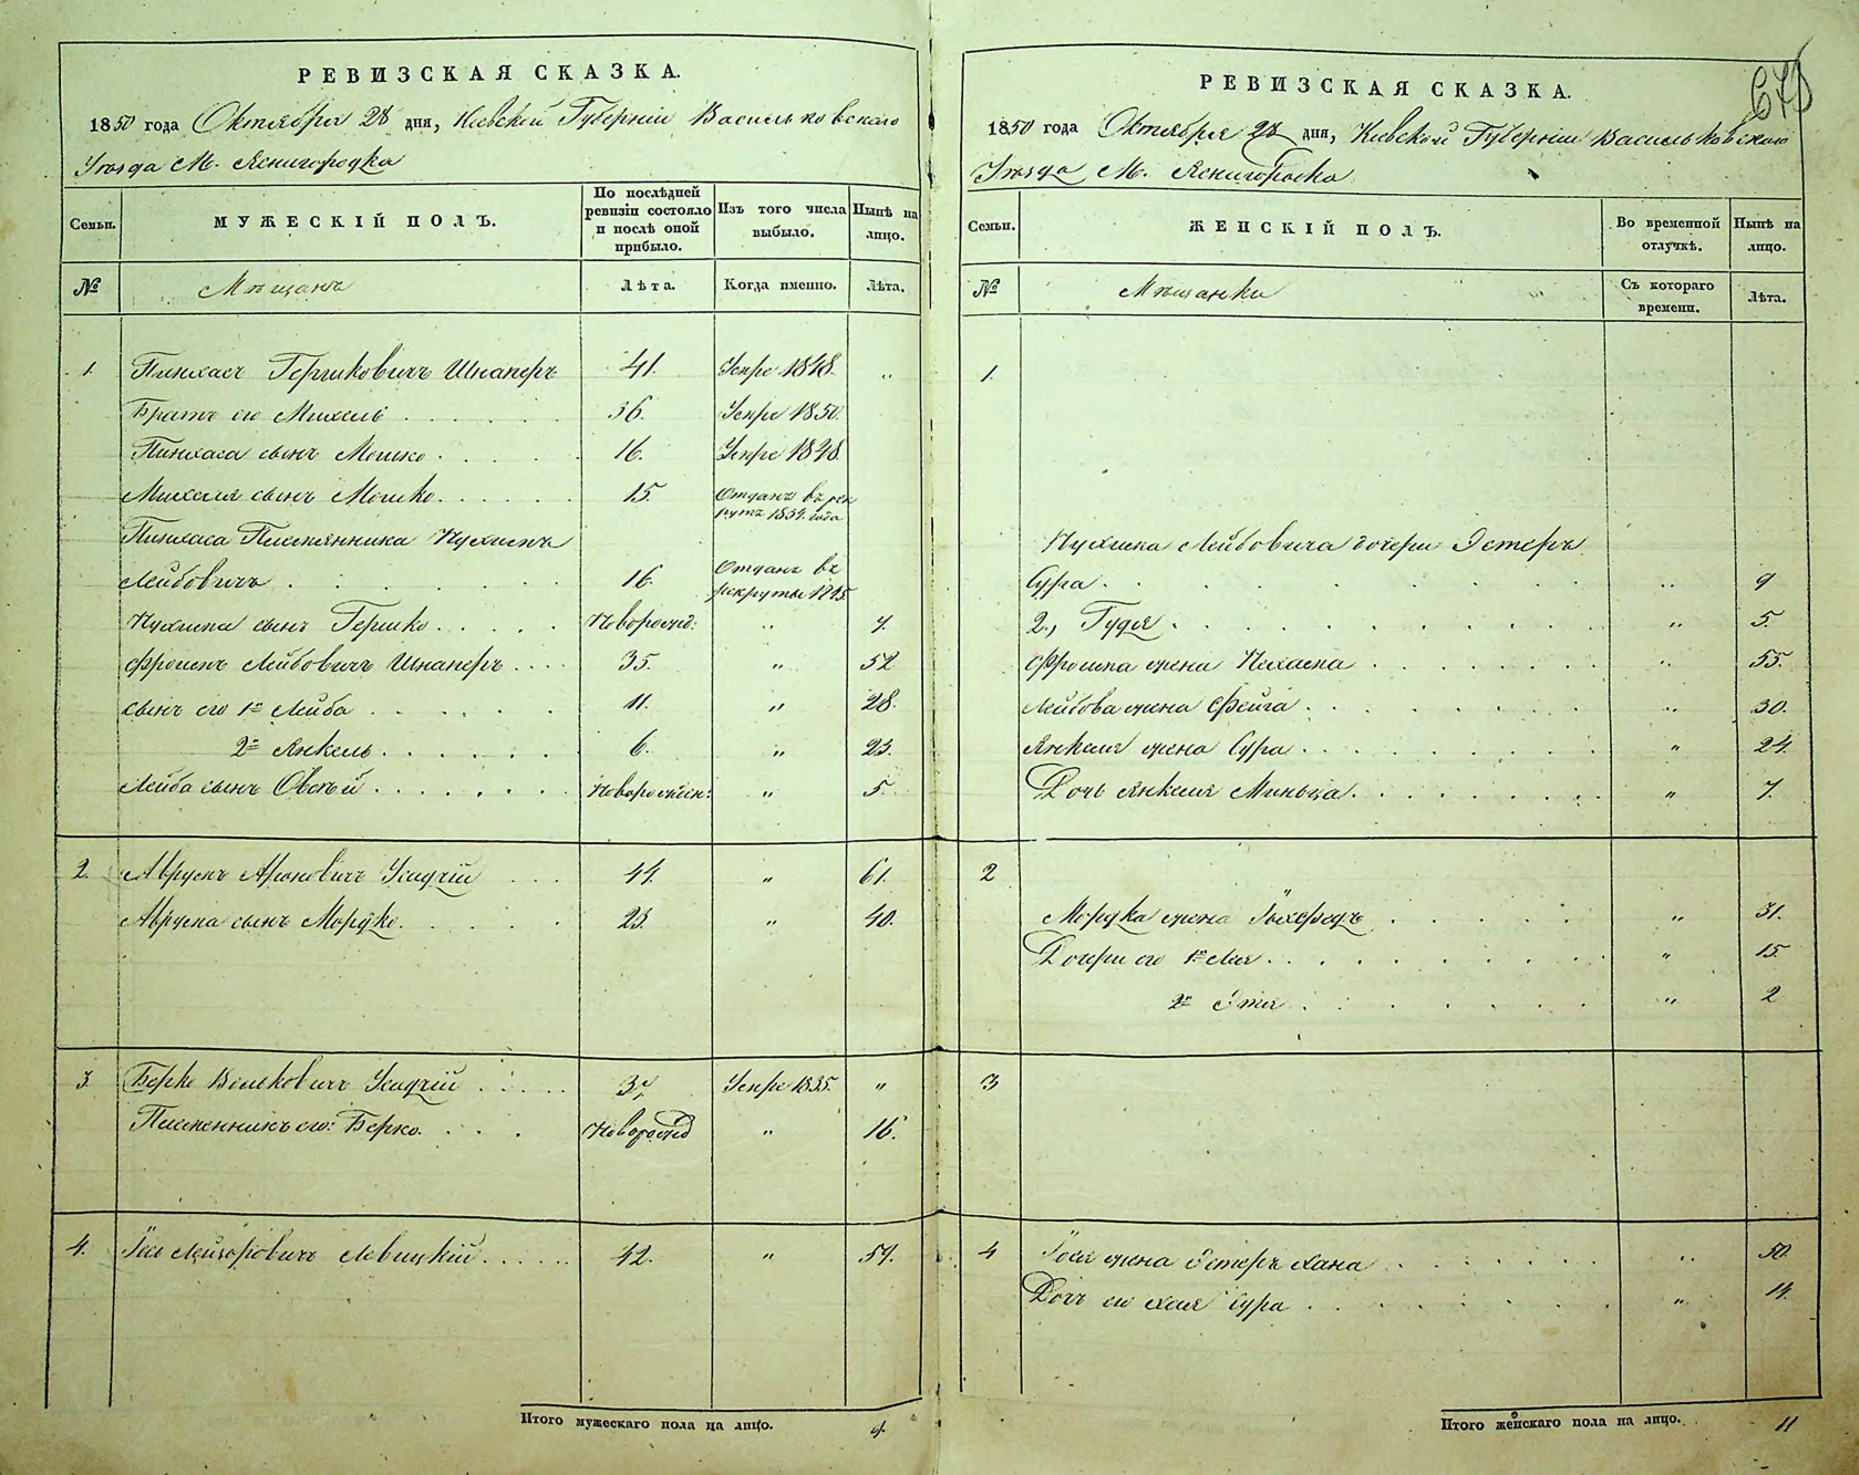 РЕВИЗСКАЯ СКАЗКА.
1850 года Октября 28 дня, Киевской Губернiи Васильковского
Уезда М. Ясногородка
Семьи.
МУЖЕСКIЙ ПОЛЪ.
По послѣдней ревизiи состояло и послѣ оной прибыло.
Изъ того числа выбыло.
Нынѣ на лицо.
№
Мѣщане
Лѣта.
Когда именно.
Лѣта.
1. Пинхасъ Гершковичъ Шнаперъ 41. Умре 1848. "
Братъ его Михель 36. Умре 1850.
Пинхаса сынъ Мошко 16. Умре 1848.
Михеля сынъ Мошко 15. Отданъ въ рек
рутъ 1834. года
Пинхаса Племянника Нухимъ
Лейбовичъ 16. Отданъ въ
рекруты 1845
Нухима сынъ Гершко Новорожд: " 7.
Фроимъ Лейбовичъ Шнаперъ 35. " 52
сынъ его 1й Лейба 11. " 28.
2й Янкель 6. " 23.
Лейба сынъ Овсѣй Новорожден: " 5.
2. Аврумъ Ароновичъ Усадчiй 44. " 61.
Аврума сынъ Мордко 23. " 40.
3. Берко Вольковичъ Усадчiй 37. Умре 1835. "
Племенникъ его: Берко Новорожд " 16.
4. Iось Лейзоровичъ Левицкiй 42. " 59.
Итого мужескаго пола на лицо. 9.
РЕВИЗСКАЯ СКАЗКА.
1850 года Октября 28 дня, Киевской Губернiи Васильковского
Уезда М. Ясногородка
Семьи.
ЖЕНСКIЙ ПОЛЪ.
Во временной отлучкѣ.
Нынѣ на лицо.
№
Мѣщанки
Съ котораго времени.
Лѣта.
1.
Нухима Лейбовича дочери Эстеръ
Сура " 9
2., Гудя " 5.
Фроима жена " 55.
Лейбова жена Фейга " 30.
Янкеля жена Сура " 24.
Дочь Янкеля Миньца " 7.
2
Мордка жена " 31.
Дочери его 1я Лея " 15.
2я Этя " 2
3
4 Iося жена Эстеръ Хана " 50.
Дочь его Хая Сура " 14.
Итого женскаго пола на лицо. 11